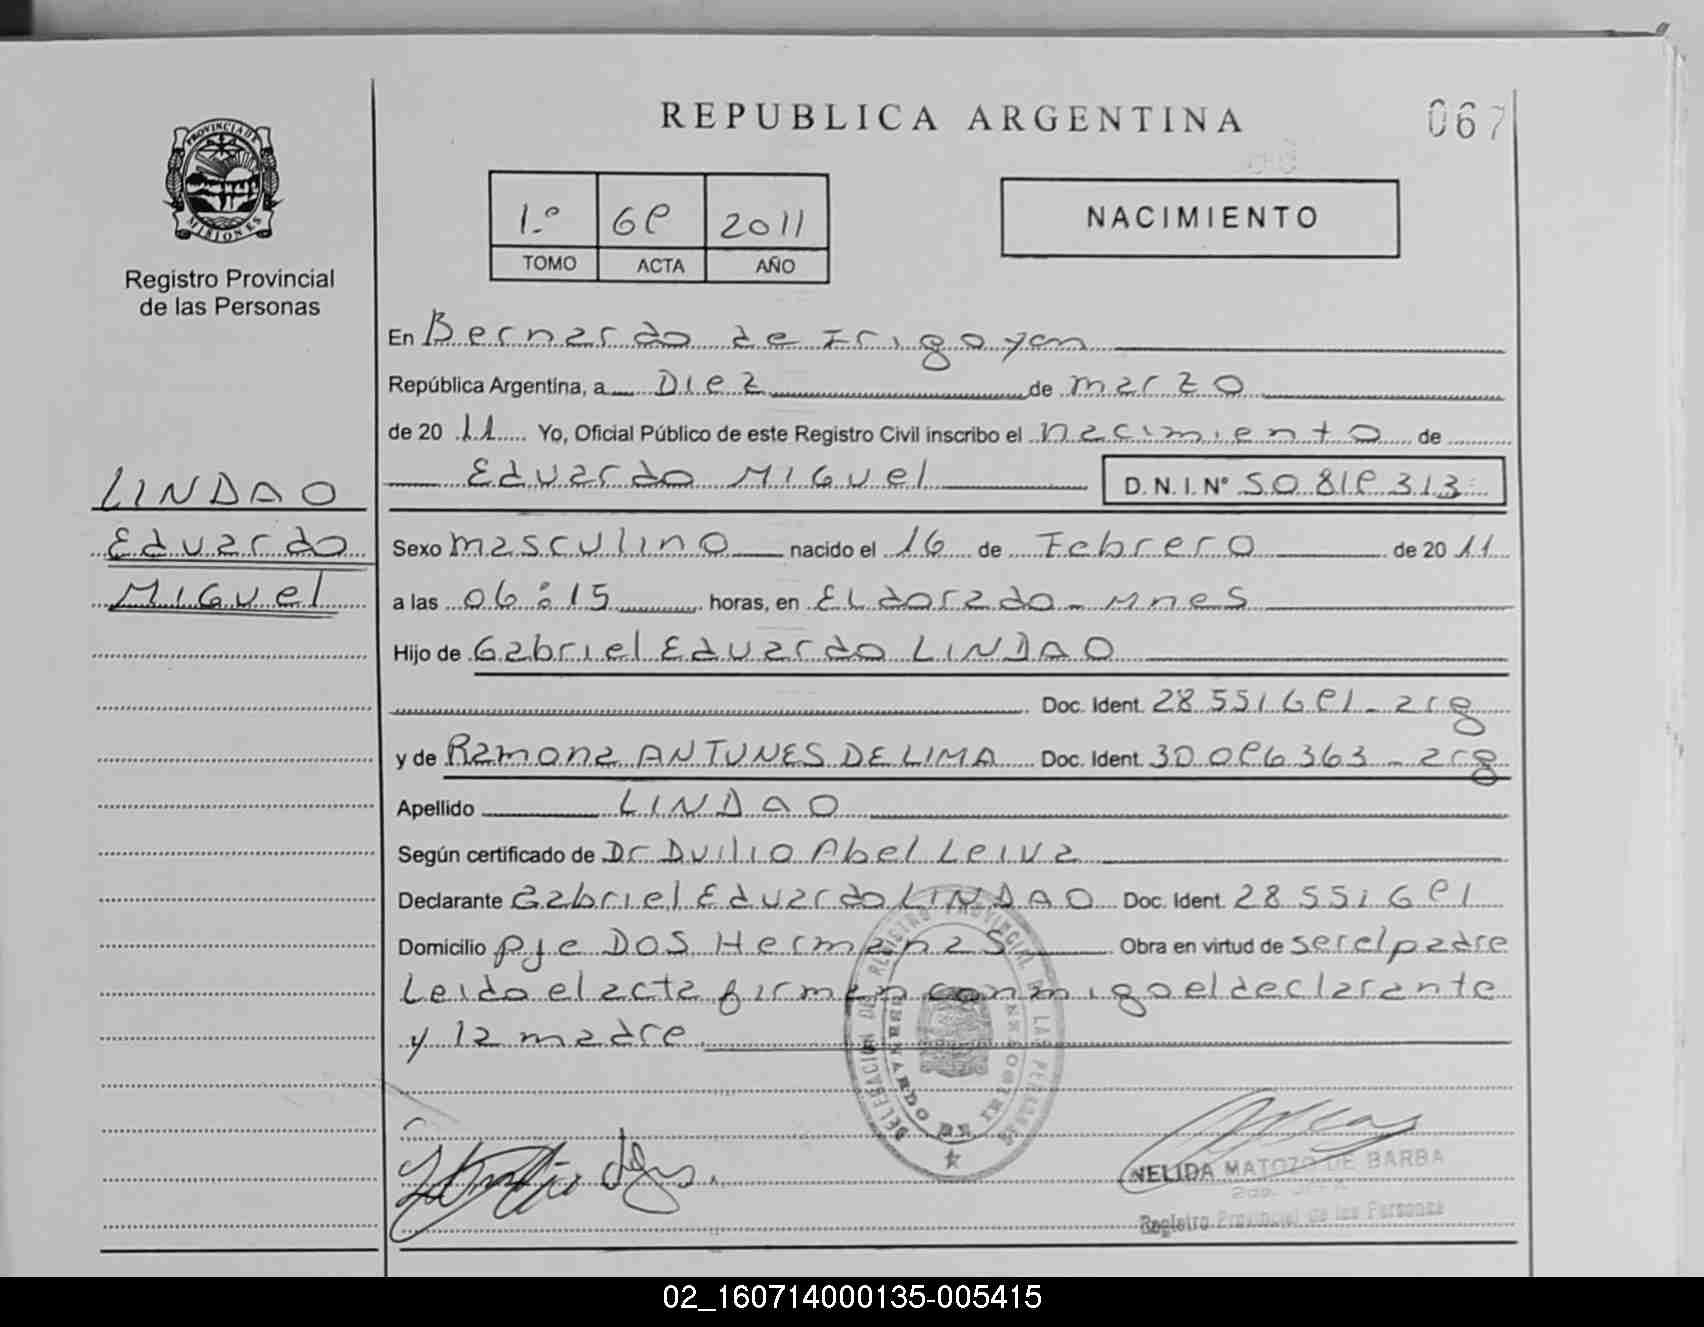 REPUBLICA ARGENTINA
067
PROVINCIA DE
MISIONES
Registro Provincial
de las Personas
1.º 69 2011
TOMO ACTA AÑO
NACIMIENTO
En Bernardo de Irigoyen
República Argentina, a Diez de marzo
de 20 11 Yo, Oficial Público de este Registro Civil inscribo el nacimiento de
Eduardo Miguel D.N.I. Nº 50.819.313
LINDAO
Eduardo
Miguel
Sexo masculino nacido el 16 de Febrero de 20 11
a las 06:15 horas, en Eldorado - Mnes
Hijo de Gabriel Eduardo LINDAO
Doc. Ident. 28 551 691 - arg
y de Ramona ANTUNES DE LIMA Doc. Ident. 30 096 363 - arg
Apellido LINDAO
Según certificado de Dr Duilio Abel Leiva
Declarante Gabriel Eduardo LINDAO Doc. Ident. 28 551 691
Domicilio pje Dos Hermanas Obra en virtud de ser el padre
Leido el acta firman conmigo el declarante
y la madre
DELEGACION DE REGISTRO PROVINCIAL DE LAS PERSONAS
BERNARDO DE IRIGOYEN
NELIDA MATOZO DE BARBA
Registro Provincial de las Personas
02_160714000135-005415